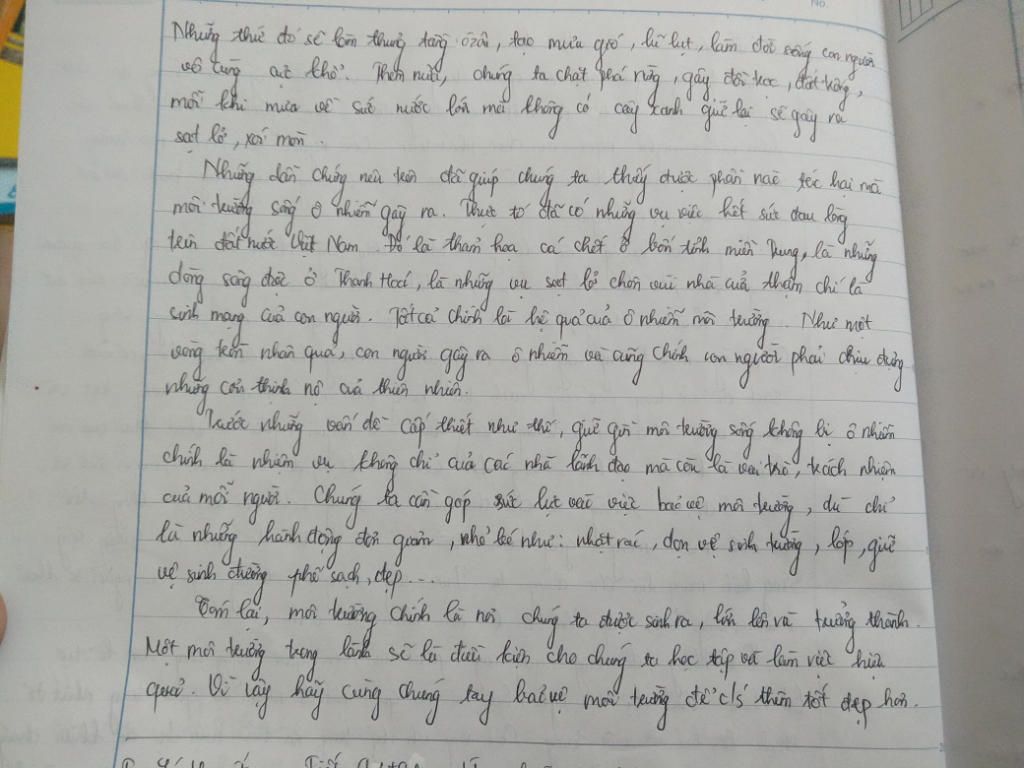 Những thứ đó sẽ làm thủng tầng ôzôn, tạo mưa gió, lũ lụt, làm đời sống con người
vô cùng cực khổ. Thêm nữa, chúng ta chặt phá rừng, gây đồi trọc, đất trống,
mỗi khi mưa về sức nước lớn mà không có cây xanh giữ lại sẽ gây ra
sạt lở, xói mòn.
Những dẫn chứng nêu trên đã giúp chúng ta thấy được phần nào tác hại mà
môi trường sống ô nhiễm gây ra. Thực tế đã có những vụ việc hết sức đau lòng
trên đất nước Việt Nam. Đó là thảm họa cá chết ở bốn tỉnh miền Trung, là những
dòng sông ở Thanh Hoá, là những vụ sạt lở chôn vùi nhà cửa thậm chí là
sinh mạng của con người. Tất cả chính là hệ quả của ô nhiễm môi trường. Như một
vòng tròn nhân quả, con người gây ra ô nhiễm và cũng chính con người phải chịu đựng
những cơn thịnh nộ của thiên nhiên.
Trước những vấn đề cấp thiết như thế, giữ gìn môi trường sống không bị ô nhiễm
chính là nhiệm vụ không chỉ của các nhà lãnh đạo mà còn là vai trò, trách nhiệm
của mỗi người. Chúng ta cần góp sức lực vào việc bảo vệ môi trường, dù chỉ
là những hành động đơn giản, nhỏ bé như: nhặt rác, dọn vệ sinh trường, lớp, giữ
vệ sinh đường phố sạch, đẹp...
Tóm lại, môi trường chính là nơi chúng ta được sinh ra, lớn lên và trưởng thành.
Một môi trường trong lành sẽ là điều kiện cho chúng ta học tập và làm việc hiệu
quả. Vì vậy hãy cùng chung tay bảo vệ môi trường để c/s thêm tốt đẹp hơn.